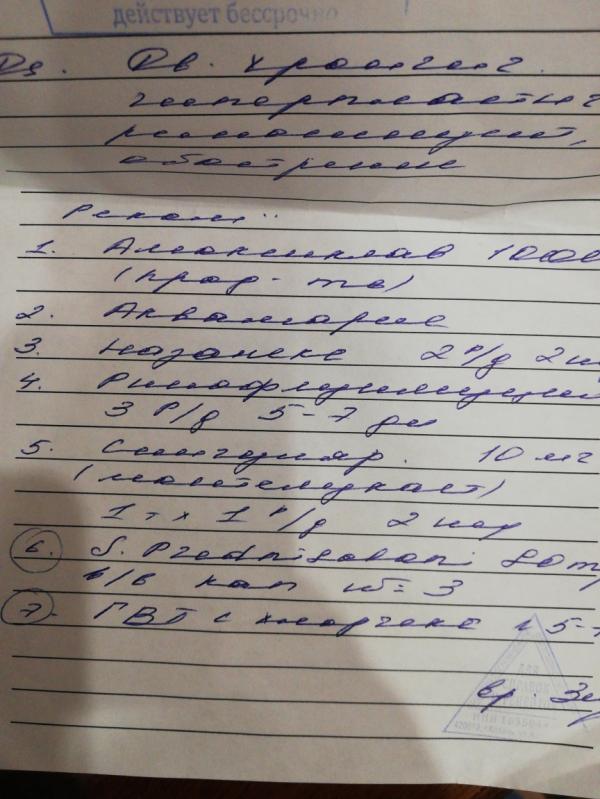 действует бессрочно
Ds. Дв. хронич.
гиперпластич
риносинусит,
обострение
Реком:
1. Амоксиклав 1000
(прод-ть)
2. Аквамарис
3. Назонекс 2 р/д 2
4. Ринофлуимуцил
3 р/д 5-7 дн
5. Сингуляр. 10 мг
(монтелукаст)
1 т х 1 р/д 2 нед
6. S. Prednisoloni
в/в кап №=3
7. ГВТ с 5-7
вр